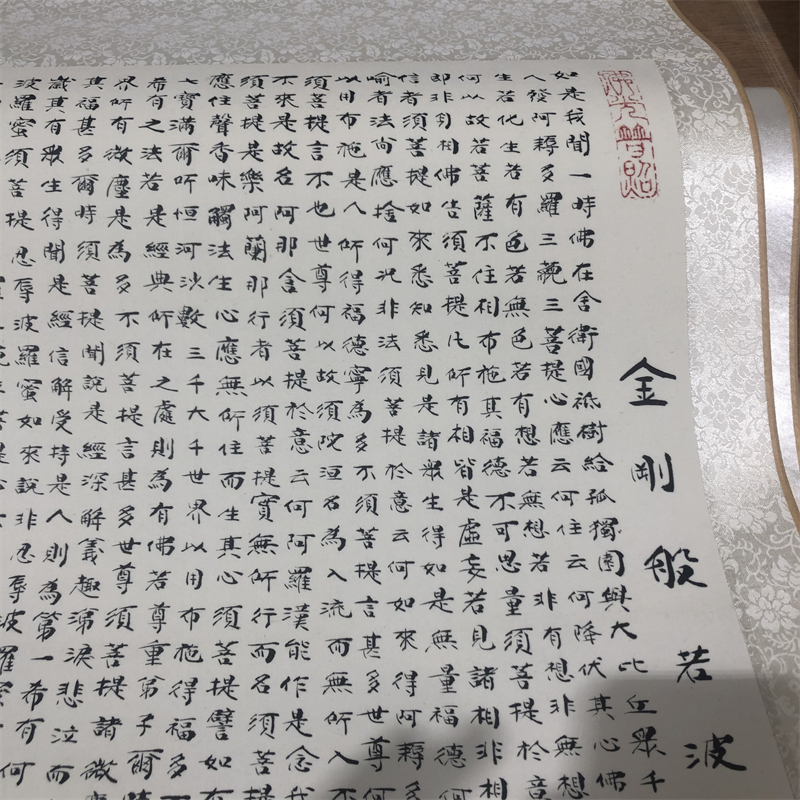 佛光普照
金剛般若波
如是我聞一時佛在舍衛國祇樹給孤獨園與大比丘眾千
人發阿耨多羅三藐三菩提心應云何住云何降伏其心佛
生若化生若有色若無色若有想若無想若非有想非無想
何以故若菩薩不住相布施其福德不可思量須菩提於意
即非身相佛告須菩提凡所有相皆是虛妄若見諸相非相
信者須菩提如來悉知悉見是諸眾生得如是無量福德何
喻者法尚應捨何況非法須菩提於意云何如來得阿耨
以用布施是人所得福德寧為多不須菩提言甚多世尊何
須菩提言不也世尊何以故須陀洹名為入流而無所入不
不來是故名阿那含須菩提於意云何阿羅漢能作是念我
須菩提是樂阿蘭那行者以須菩提實無所行而名須菩提
應住聲香味觸法生心應無所住而生其心須菩提譬如有
七寶滿爾所恒河沙數三千大千世界以用布施得福多
希有之法若是經典所在之處則為有佛若尊重弟子爾時
界所有微塵是為多不須菩提言甚多世尊須菩提諸微塵
其福甚多爾時須菩提聞說是經深解義趣涕淚悲泣而
歲其有眾生得聞是經信解受持是人則為第一希有何
波羅蜜須菩提忍辱波羅蜜如來說非忍辱波羅蜜何